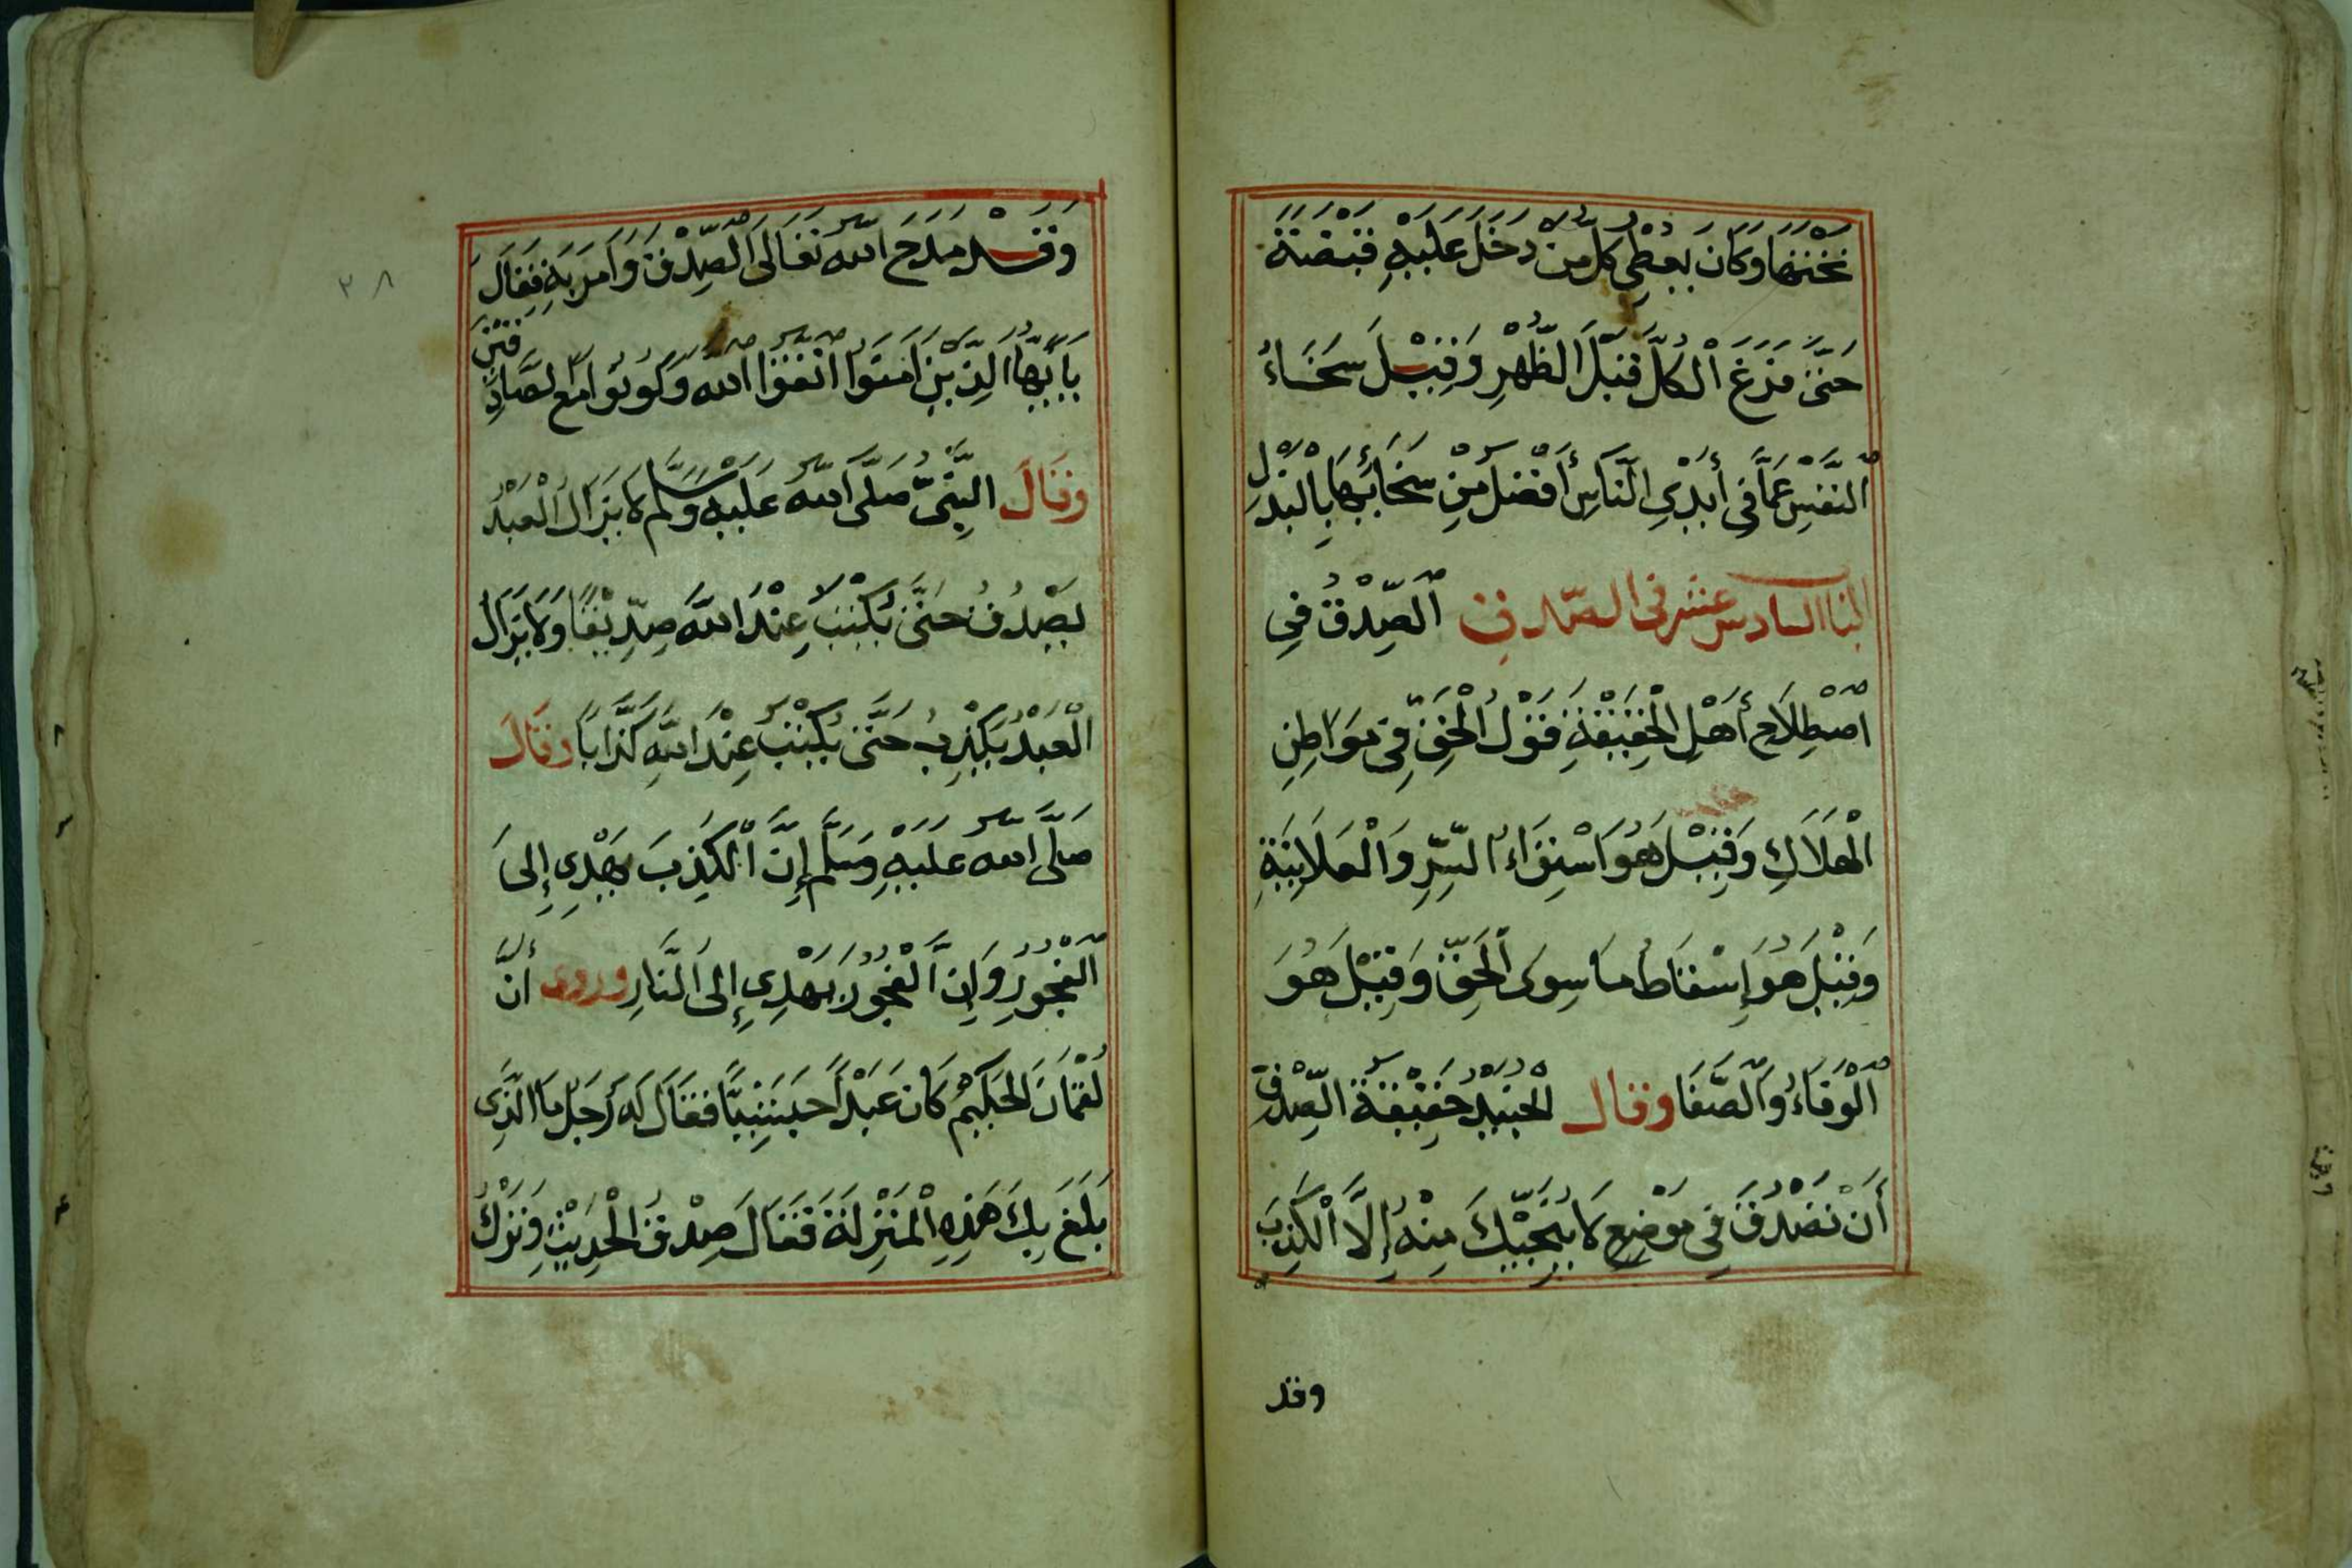 نَحْتَهَا وَكَانَ يُعْطِي كُلَّ مَنْ دَخَلَ عَلَيْهِ قَبْضَةً
حَتَّى فَرَغَ الْكُلُّ قَبْلَ الظُّهْرِ وَقِيْلَ سَخَاءُ
النَّفْسِ عَمَّا فِي أَيْدِي النَّاسِ أَفْضَلُ مِنْ سَخَائِهَا بِالْبَذْلِ
الباب السادس عشر في الصدق الصِّدْقُ فِي
اصْطِلَاحِ أَهْلِ الْحَقِيْقَةِ قَوْلُ الْحَقِّ فِي مَوَاطِنِ
الْهَلَاكِ وَقِيْلَ هُوَ اسْتِوَاءُ السِّرِّ وَالْعَلَانِيَةِ
وَقِيْلَ هُوَ إِسْقَاطُ مَا سِوَى الْحَقِّ وَقِيْلَ هُوَ
الْوَفَاءُ وَالصَّفَا وقال الْجُنَيْدُ حَقِيْقَةُ الصِّدْقِ
أَنْ تَصْدُقَ فِي مَوْضِعٍ لَا يُنَجِّيْكَ مِنْهُ إِلَّا الْكَذِبَ
وقد
وَقَدْ مَدَحَ اللّٰه تَعَالَى الصِّدْقَ وَأَمَرَ بِهِ فَقَالَ
يَا أَيُّهَا الَّذِيْنَ آمَنُوا اتَّقُوا اللّٰه وَكُونُوا مَعَ الصَّادِقِيْنَ
وَقَالَ النَّبِيُّ صَلَّى اللّٰه عَلَيْهِ وَسَلَّم لَا يَزَالُ الْعَبْدُ
يَصْدُقُ حَتَّى يُكْتَبَ عِنْدَ اللّٰهِ صِدِّيْقًا وَلَا يَزَالُ
الْعَبْدُ يَكْذِبُ حَتَّى يُكْتَبَ عِنْدَ اللّٰهِ كَذَّابًا وَقَالَ
صَلَّى اللّٰه عَلَيْهِ وَسَلَّم إِنَّ الْكَذِبَ يَهْدِي إِلَى
الْفُجُورِ وَإِنَّ الْفُجُورَ يَهْدِي إِلَى النَّارِ وروى أَنَّ
لُقْمَانَ الْحَكِيْمُ كَانَ عَبْدًا حَبَشِيًّا فَقَالَ لَهُ رَجُلٌ مَا الَّذِي
بَلَغَ بِكَ هَذِهِ الْمَنْزِلَةَ فَقَالَ صِدْقُ الْحَدِيْثِ وَتَرْكُ
٣٨